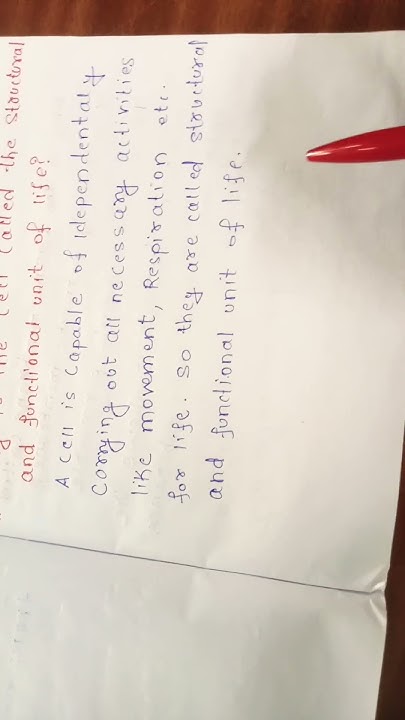 is the Cell Called the structural
and functional unit of life?
A Cell is Capable of Idependentaly
Carrying out all necessary activities
like movement, Respiration etc.
for life. So they are called structural
and functional unit of life.